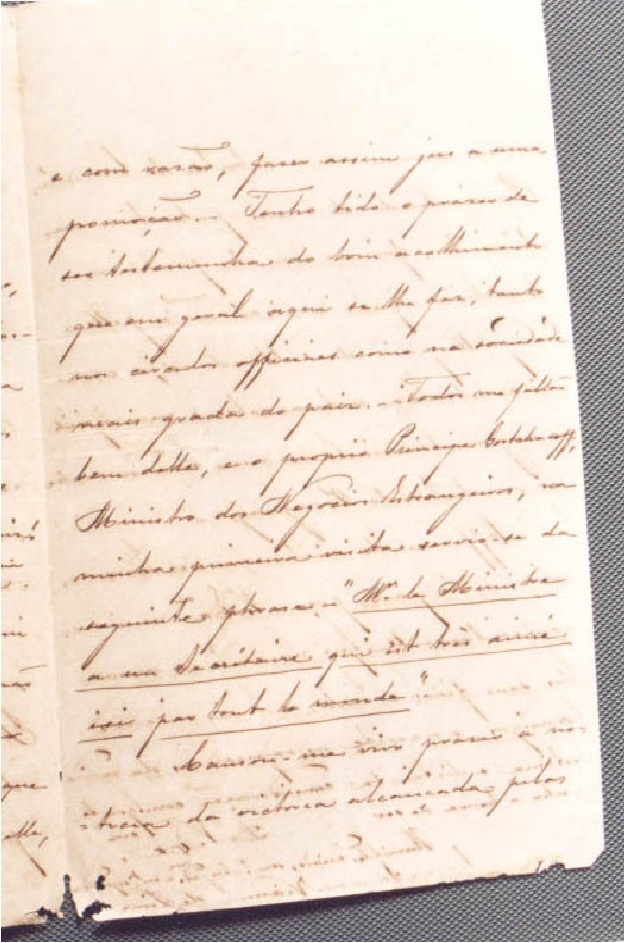 e com razão, fazer assim jus a uma
promoção. Tenho tido o prazer de
ser testemunha do bom acolhimento
que em geral aqui se lhe faz, tanto
nos circulos officiaes como na sociedade
mais grada do paiz. Todos me fallão
bem delle, e o proprio Principe Gortchacoff,
Ministro dos Negocios Estrangeiros, na
minha primeira visita servio-se da
seguinte phrase "Mr. le Ministre
a un Secrétaire qui est très aimé
ici par tout le monde"
Causou-me vivo prazer a no-
ticia da victoria alcançada pelas